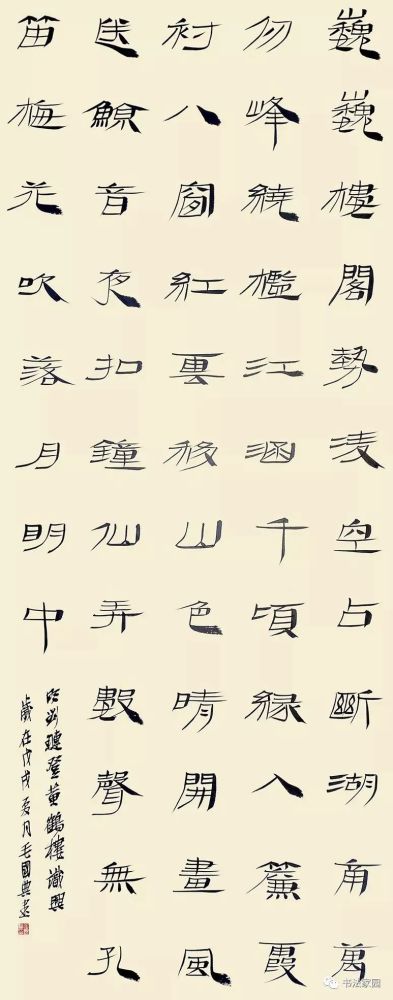 巍巍樓閣勢凌空占斷湖南萬
仞峰繞檻江涵千頃綠入簾霞
衬八窗紅雲移山色晴開畫風
送鯨音夜扣鐘仙弄數聲無孔
笛梅花吹落月明中
明劉璉登黃鶴樓識興
歲在戊戌夏月毛國典書
书法家园